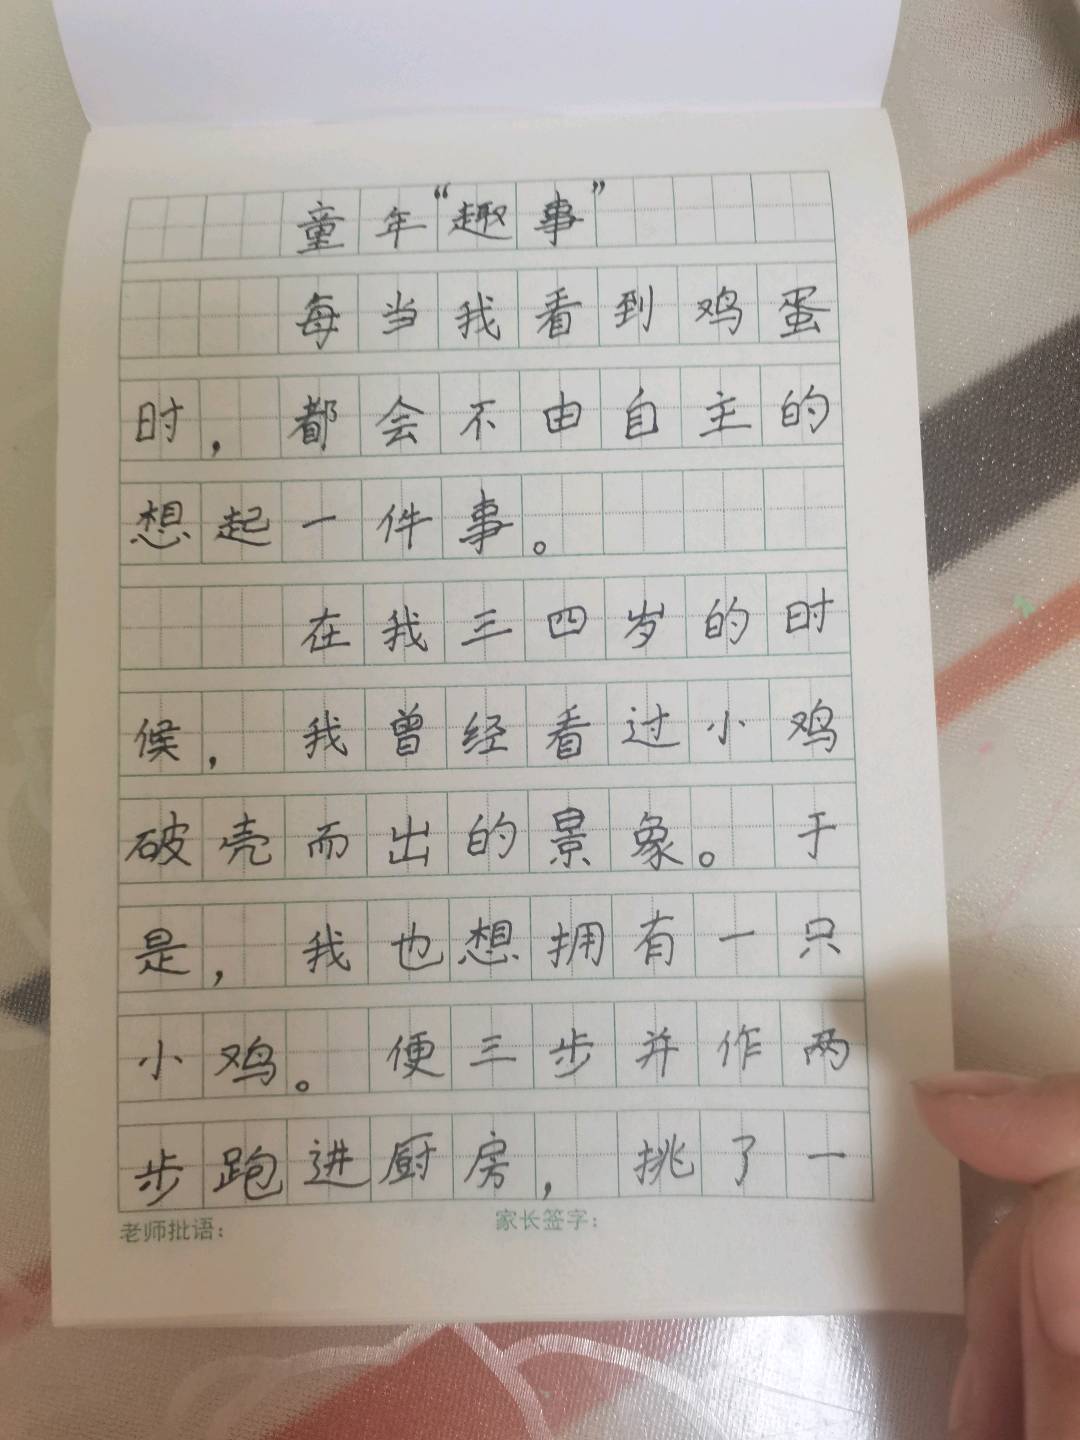 童年“趣事”
每当我看到鸡蛋
时，都会不由自主的
想起一件事。
在我三四岁的时
候，我曾经看过小鸡
破壳而出的景象。于
是，我也想拥有一只
小鸡。便三步并作两
步跑进厨房，挑了一
老师批语： 家长签字：